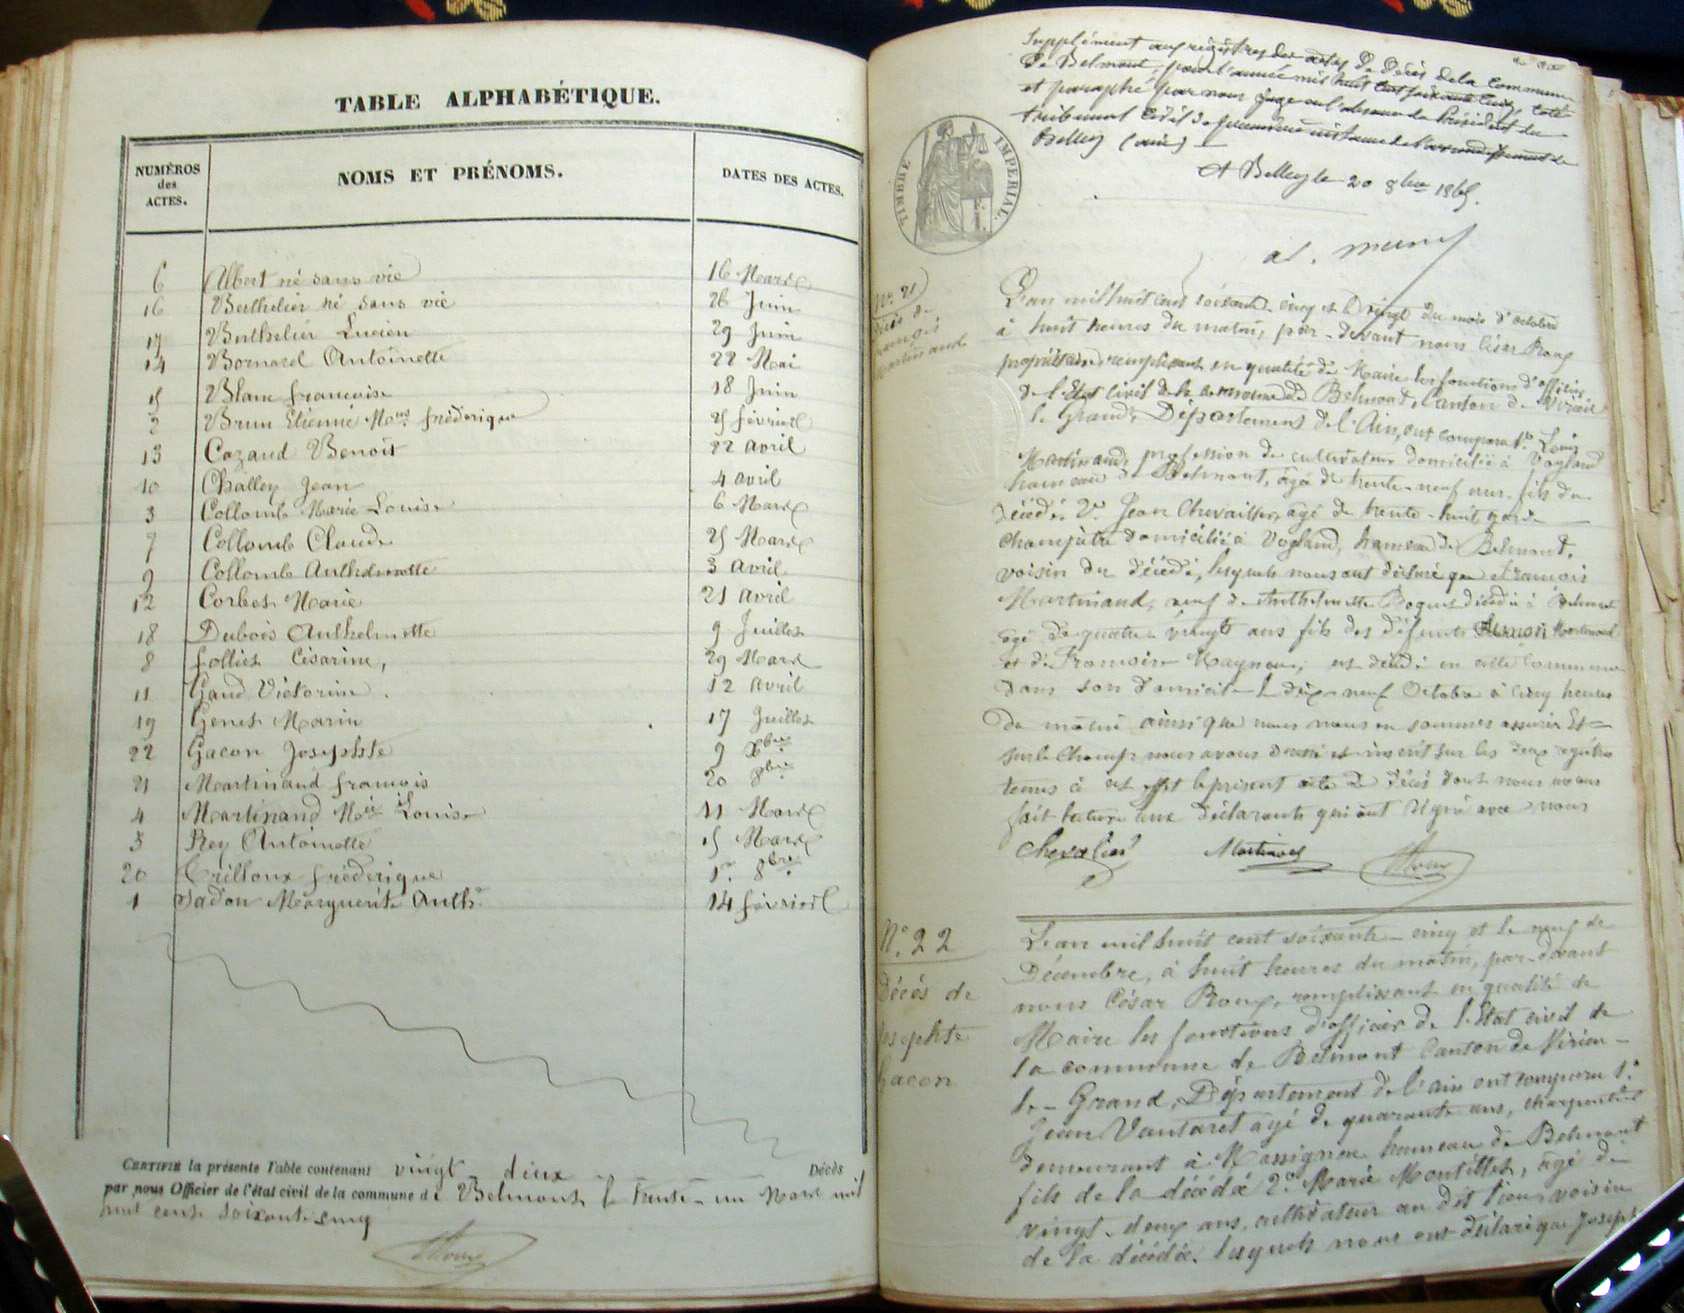 TABLE ALPHABÉTIQUE.
NUMÉROS des ACTES.
NOMS ET PRÉNOMS.
DATES DES ACTES.
6 Albert né sans vie 16 Mars
16 Berthelier né sans vie 26 Juin
17 Berthelier Lucien 29 Juin
14 Bornard Antoinette 22 Mai
15 Blanc françoise 18 Juin
2 Brun Etienne frédérique 25 février
13 Cazaud Benoit 22 avril
10 Challey Jean 4 avril
3 Collomb Marie Louise 6 Mars
7 Collomb Claude 25 Mars
9 Collomb Anthelmette 3 avril
12 Corbet Marie 21 avril
18 Dubois Anthelmette 9 Juillet
8 folliet Césarine, 29 Mars
11 Gaud Victorine. 12 avril
19 Genet Marin 17 Juillet
22 Gacon Josephte 9 Xbre
21 Martinand françois 20 8bre
4 Martinand Mie Louise 11 Mars
5 Rey Antoinette 15 Mars
20 Trilloux frédérique 1er 8bre
1 Marguerite Anth. 14 février
CERTIFIE la présente Table contenant vingt-deux Décès
par nous Officier de l'état civil de la commune de Belmont le trente-un Mars mil
huit cent soixante cinq
Roux
Supplément aux registres des actes de Décès de la commune
de Belmont, pour l'année mil huit cent soixante cinq, coté
et paraphé par nous Juge en l'absence du Président du
tribunal Civil de première instance de l'arrondissement de
Belley (ain)
A Belley le 20 8bre 1865.
TIMBRE IMPÉRIAL
No. 21
Décès de
françois
Martinand
L'an mil huit cent soixante-cinq et le vingt du mois d'octobre
à huit heures du matin, par-devant nous César Roux
propriétaire remplissant en qualité de Maire les fonctions d'officier
de l'Etat civil de la commune de Belmont, Canton de Virieu
le Grand, Département de l'Ain, ont comparu 1o. Louis
Martinand, profession de cultivateur domicilié à Vogland
hameau de Belmont, âgé de trente-neuf ans fils du
décédé. 2o. Jean Chevallier, âgé de trente-huit garde
champêtre domicilié à Vogland, hameau de Belmont.
voisin du décédé, lesquels nous ont déclaré que François
Martinand, veuf de Anthelmette décédée à Belmont
âgé de quatre-vingts ans fils des défunts Martinand
et de Françoise est décédé en cette Commune
Dans son domicile le dix-neuf Octobre à cinq heures
du matin ainsi que nous nous en sommes assurés Et
sur le champ nous avons dressé et inscrit sur les deux registres
tenus à cet effet le présent acte de décès dont nous avons
fait lecture aux Déclarants qui ont signé avec nous
Chevalier Martinand Roux
No. 22
Décès de
Josephte
Gacon
L'an mil huit cent soixante-cinq et le neuf de
Décembre, à huit heures du matin, par-devant
nous César Roux, remplissant en qualité de
Maire les fonctions d'officier de l'Etat civil de
la commune de Belmont Canton de Virieu-
le-Grand, Département de l'ain ont comparu 1o.
Jean Vautaret âgé de quarante ans, charpentier
demeurant à Massignieu hameau de Belmont
fils de la décédée 2o. Marie Montillet, âgé de
vingt-deux ans, cultivateur au dit lieu, voisin
de la décédée. lesquels nous ont déclaré que Joseph